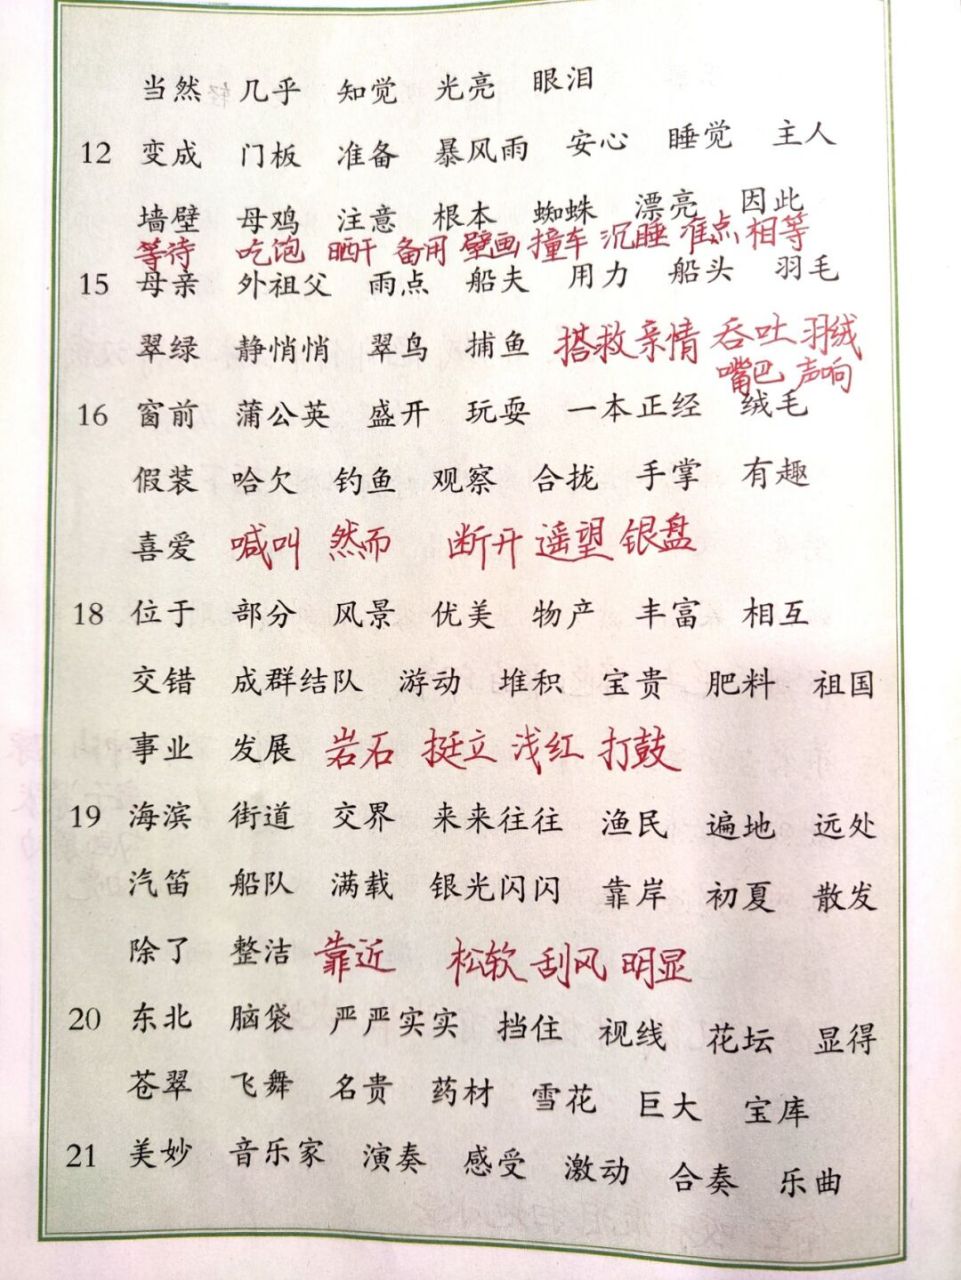 当然 几乎 知觉 光亮 眼泪
12 变成 门板 准备 暴风雨 安心 睡觉 主人
墙壁 母鸡 注意 根本 蜘蛛 漂亮 因此
等待 吃饱 晒干 备用 壁画 撞车 沉睡 准点 相等
15 母亲 外祖父 雨点 船夫 用力 船头 羽毛
翠绿 静悄悄 翠鸟 捕鱼 搭救 亲情 吞吐 羽绒
嘴巴 声响
16 窗前 蒲公英 盛开 玩耍 一本正经 绒毛
假装 哈欠 钓鱼 观察 合拢 手掌 有趣
喜爱 喊叫 然而 断开 遥望 银盘
18 位于 部分 风景 优美 物产 丰富 相互
交错 成群结队 游动 堆积 宝贵 肥料 祖国
事业 发展 岩石 挺立 浅红 打鼓
19 海滨 街道 交界 来来往往 渔民 遍地 远处
汽笛 船队 满载 银光闪闪 靠岸 初夏 散发
除了 整洁 靠近 松软 刮风 明显
20 东北 脑袋 严严实实 挡住 视线 花坛 显得
苍翠 飞舞 名贵 药材 雪花 巨大 宝库
21 美妙 音乐家 演奏 感受 激动 合奏 乐曲